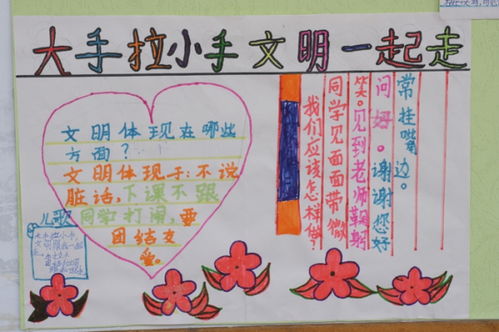 大手拉小手文明一起走
文明体现在哪些
方面？
文明体现于：不说
脏话，下课不跟
同学打闹，要
团结友
爱。
我们应该怎样做？
同学见面面带微
笑。见到老师鞠躬
问好。谢谢您好
常挂嘴边。
儿歌
大手拉小手